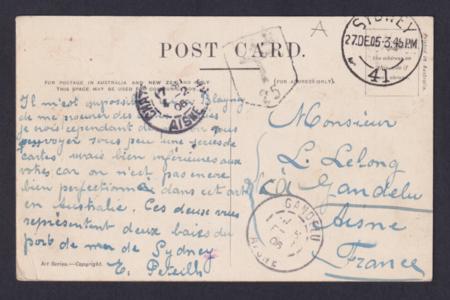 SYDNEY
27.DE.05-3.45PM
41
POST CARD.
FOR POSTAGE IN AUSTRALIA AND NEW ZEALAND
THIS SPACE MAY BE USED FOR CORRESPONDENCE.
(FOR ADDRESS ONLY).
AISNE
Il m'est impossible Blayney
de me procurer des
je vois cependant
envoyer sous peu une series de
cartes mais bien inférieures aux
votres car on n'est pas encore
bien perfectionné dans cet art
en Australie. Ces deux vues
représentent deux baies du
port de mer de Sydney
E.
Monsieur
L. Lelong
à Gandelu
Aisne
France
GANDELU
AISNE
Art Series.—Copyright.